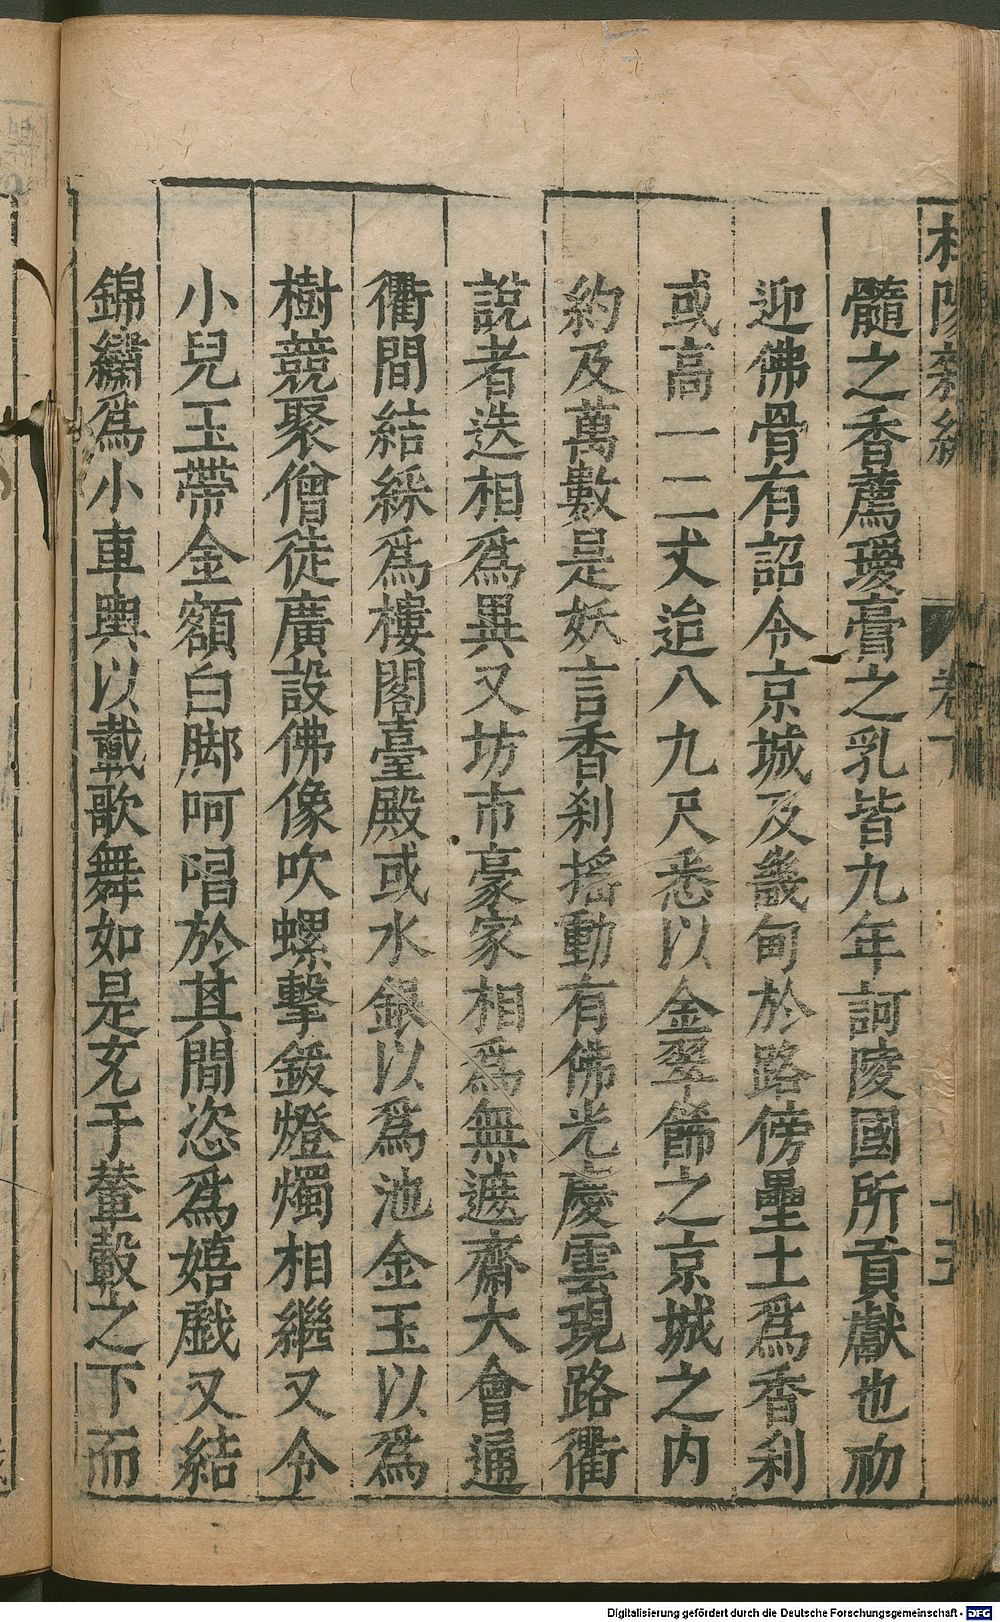 杜陽雜編 卷下 十五
髓之香薦瓊膏之乳皆九年訶陵國所貢獻也初
迎佛骨有詔令京城及畿甸於路傍壘土爲香刹
或高一二丈迨八九尺悉以金翠飾之京城之内
約及萬數是妖言香刹搖動有佛光慶雲現路衢
說者迭相爲異又坊市豪家相爲無遮齋大會通
衢間結綵爲樓閣臺殿或水銀以爲池金玉以爲
樹競聚僧徒廣設佛像吹螺擊鈸燈燭相繼又令
小兒玉帶金額白脚呵唱於其間恣爲嬉戲又結
錦繡爲小車輿以載歌舞如是充于輦轂之下而
Digitalisierung gefördert durch die Deutsche Forschungsgemeinschaft - DFG